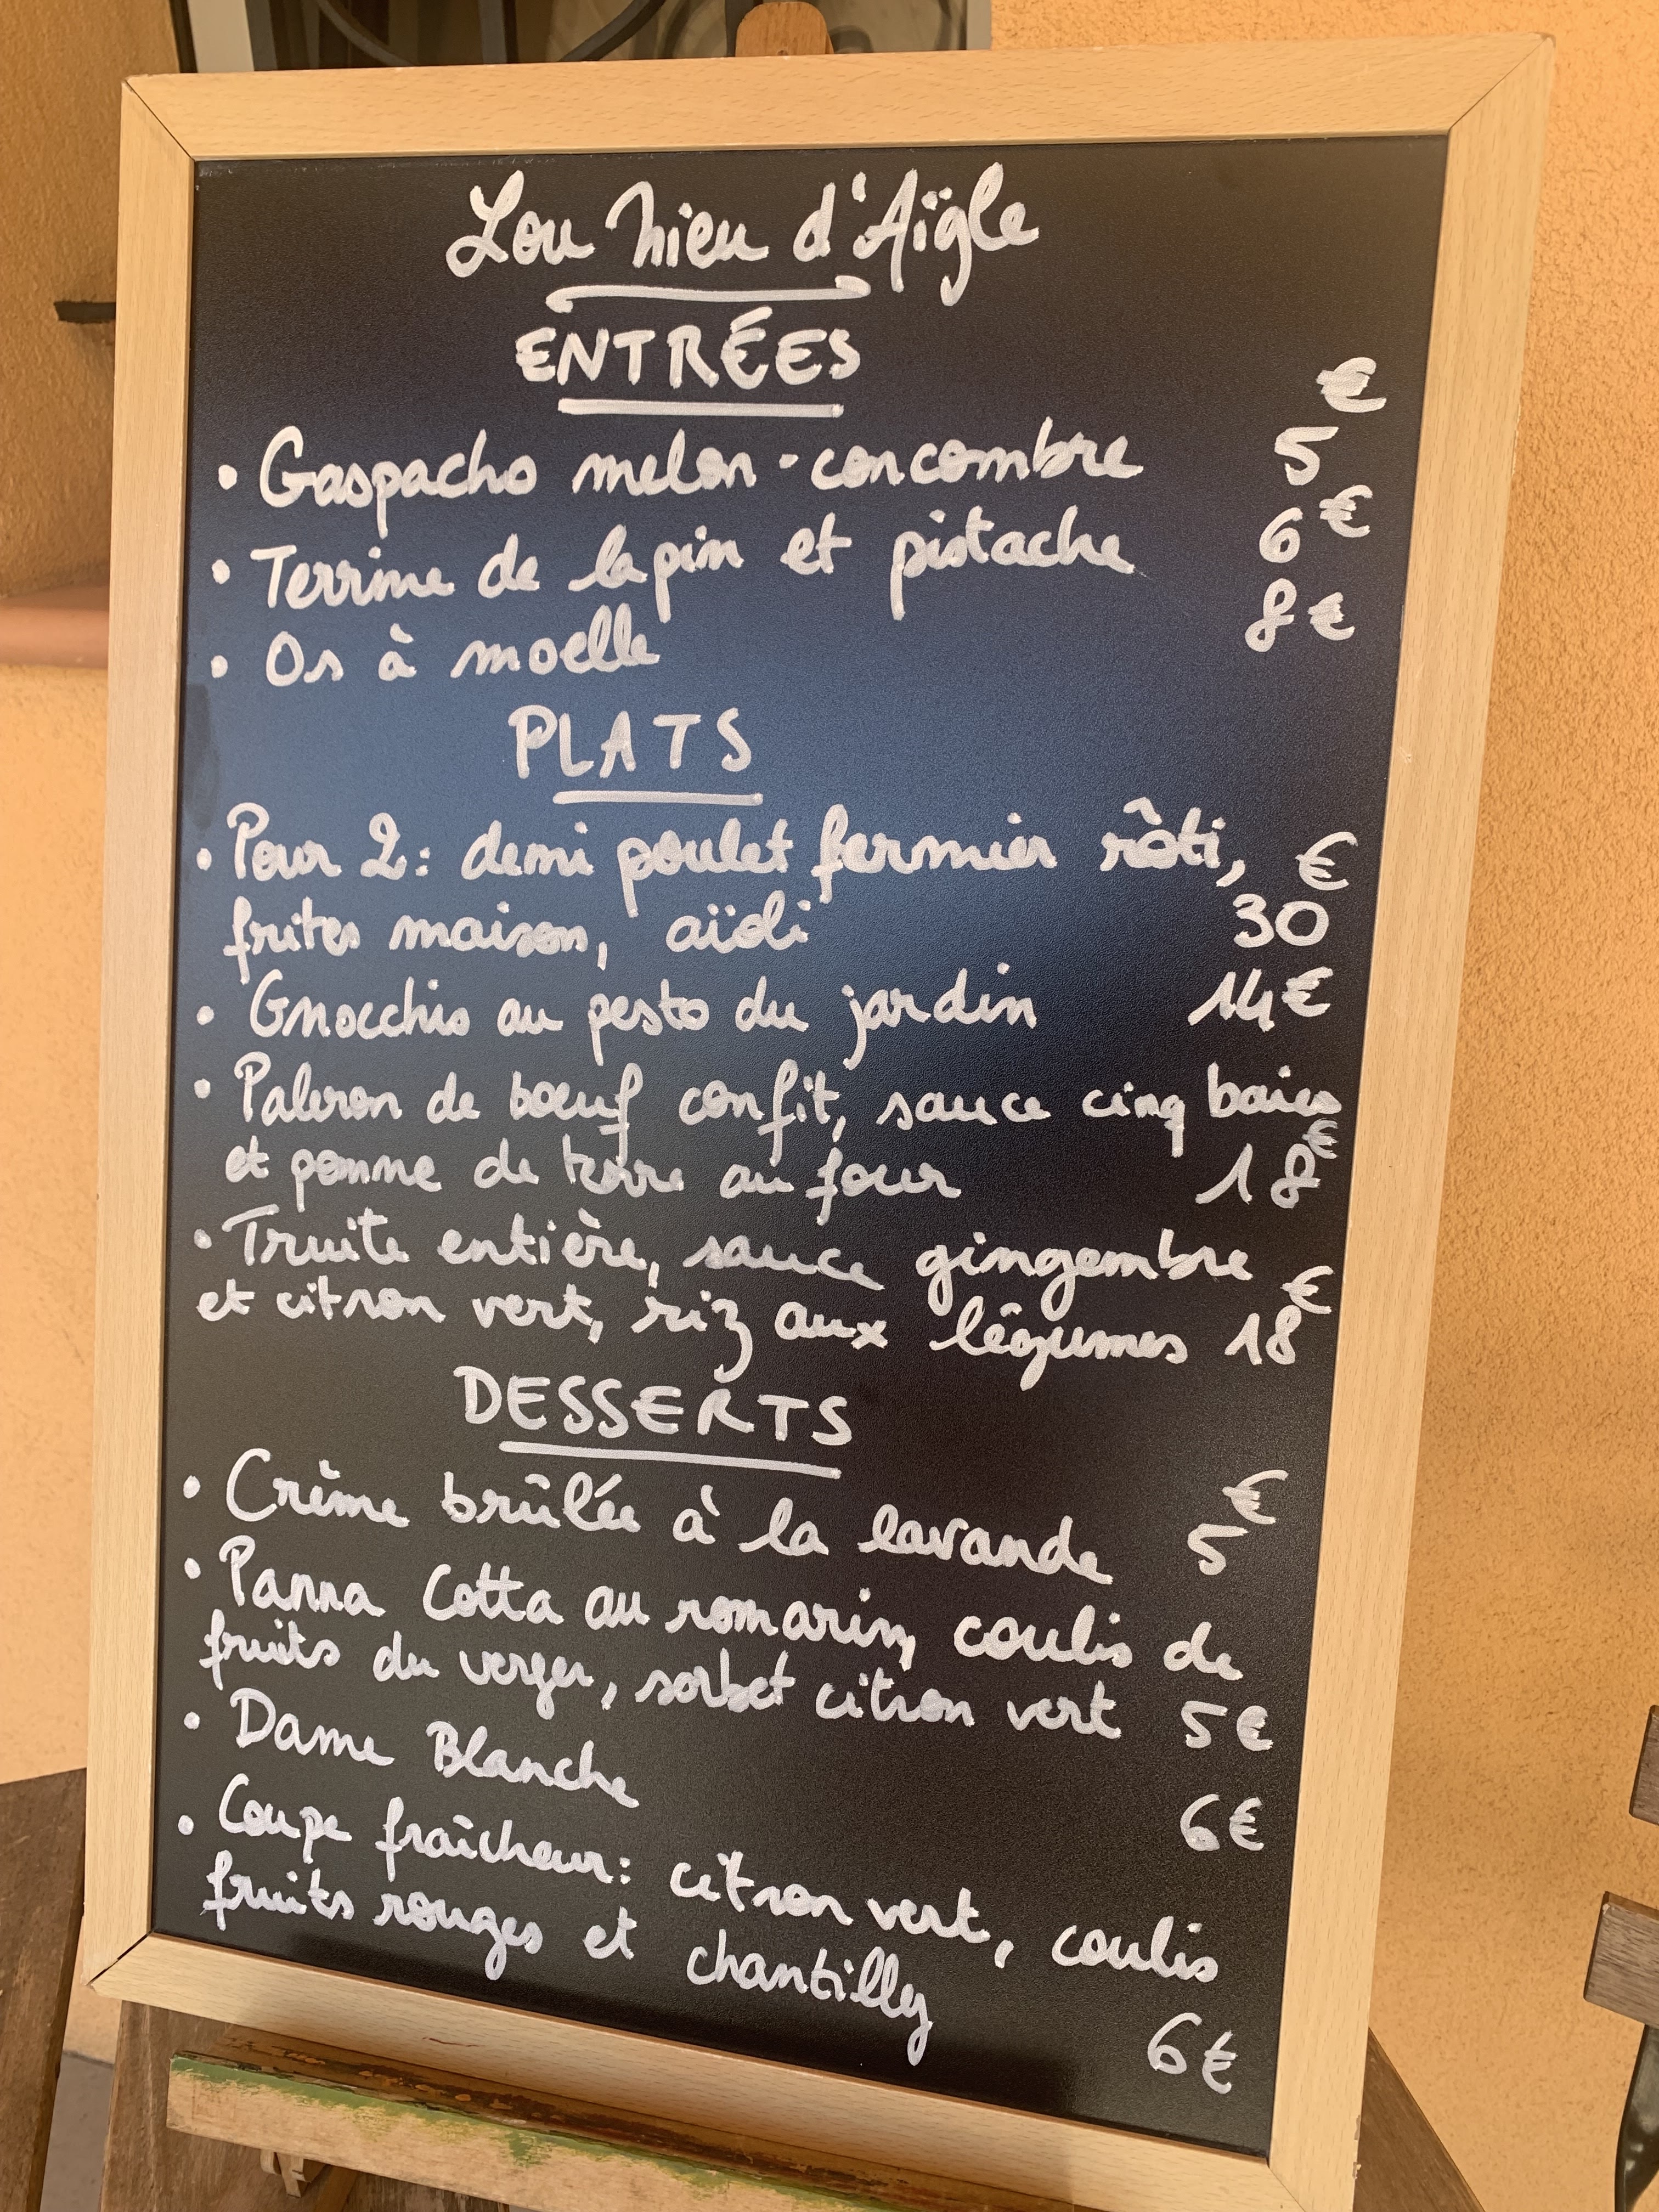 Lou Nieu d'Aïgle
ENTRÉES
• Gaspacho melon-concombre 5€
• Terrine de lapin et pistache 6€
• Os à moelle 8€
PLATS
• Pour 2: demi poulet fermier rôti,
frites maison, aïoli 30€
• Gnocchis au pesto du jardin 14€
• Paleron de bœuf confit, sauce cinq baies
et pomme de terre au four 18€
• Truite entière, sauce gingembre
et citron vert, riz aux légumes 18€
DESSERTS
• Crème brûlée à la lavande 5€
• Panna Cotta au romarin, coulis de
fruits du verger, sorbet citron vert 5€
• Dame Blanche 6€
• Coupe fraîcheur: citron vert, coulis
fruits rouges et chantilly 6€